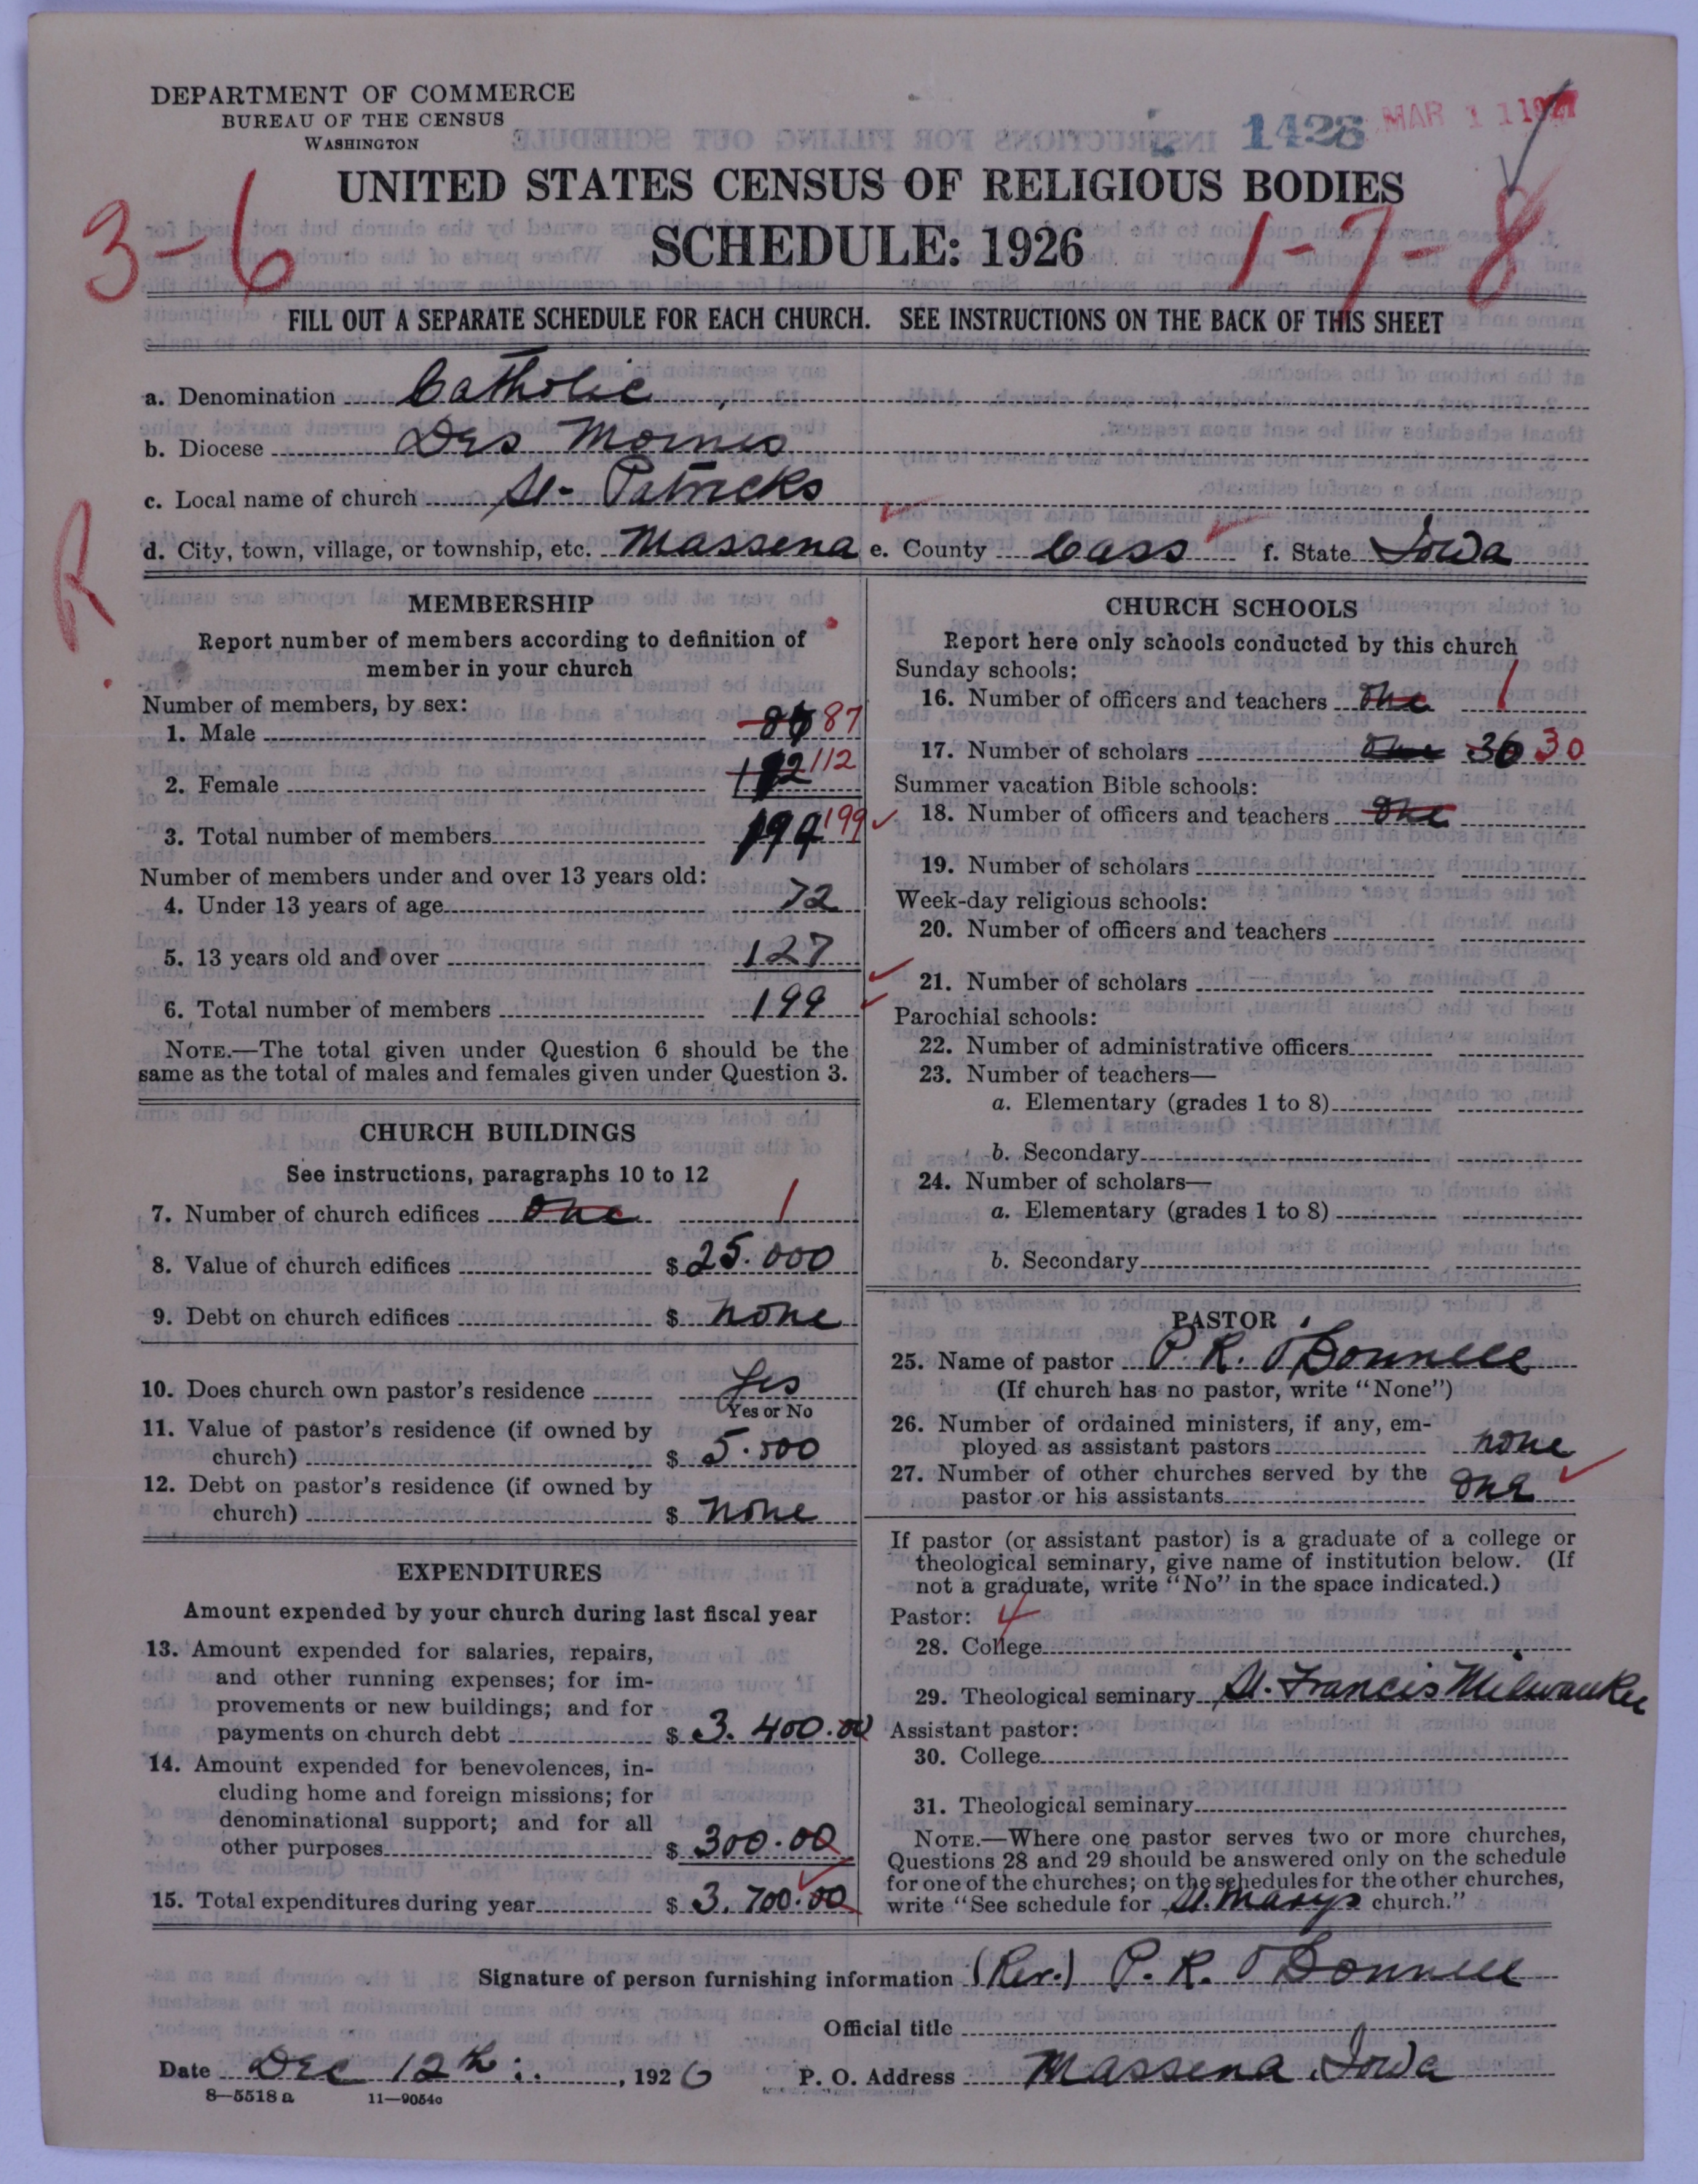 DEPARTMENT OF COMMERCE
BUREAU OF THE CENSUS
WASHINGTON
1428 MAR 11 1927
UNITED STATES CENSUS OF RELIGIOUS BODIES
SCHEDULE: 1926
3-6
1-7-8
FILL OUT A SEPARATE SCHEDULE FOR EACH CHURCH. SEE INSTRUCTIONS ON THE BACK OF THIS SHEET
a. Denomination Catholic
b. Diocese Des Moines
c. Local name of church St- Patricks
d. City, town, village, or township, etc. Massena e. County Cass f. State Iowa
R.
MEMBERSHIP
Report number of members according to definition of
member in your church
Number of members, by sex:
1. Male 87
2. Female 112
3. Total number of members 199 199
Number of members under and over 13 years old:
4. Under 13 years of age 72
5. 13 years old and over 127
6. Total number of members 199
NOTE.—The total given under Question 6 should be the
same as the total of males and females given under Question 3.
CHURCH BUILDINGS
See instructions, paragraphs 10 to 12
7. Number of church edifices One 1
8. Value of church edifices $ 25.000
9. Debt on church edifices $ none
10. Does church own pastor's residence Yes
Yes or No
11. Value of pastor's residence (if owned by
church) $ 5.500
12. Debt on pastor's residence (if owned by
church) $ none
EXPENDITURES
Amount expended by your church during last fiscal year
13. Amount expended for salaries, repairs,
and other running expenses; for im-
provements or new buildings; and for
payments on church debt $ 3.400.00
14. Amount expended for benevolences, in-
cluding home and foreign missions; for
denominational support; and for all
other purposes $ 300.00
15. Total expenditures during year $ 3.700.00
CHURCH SCHOOLS
Report here only schools conducted by this church
Sunday schools:
16. Number of officers and teachers One 1
17. Number of scholars One 30 30
Summer vacation Bible schools:
18. Number of officers and teachers One
19. Number of scholars
Week-day religious schools:
20. Number of officers and teachers
21. Number of scholars
Parochial schools:
22. Number of administrative officers
23. Number of teachers—
a. Elementary (grades 1 to 8)
b. Secondary
24. Number of scholars—
a. Elementary (grades 1 to 8)
b. Secondary
PASTOR
25. Name of pastor P. R. O'Donnell
(If church has no pastor, write "None")
26. Number of ordained ministers, if any, em-
ployed as assistant pastors none
27. Number of other churches served by the
pastor or his assistants One
If pastor (or assistant pastor) is a graduate of a college or
theological seminary, give name of institution below. (If
not a graduate, write "No" in the space indicated.)
Pastor: 4
28. College
29. Theological seminary St. Francis Milwaukee
Assistant pastor:
30. College
31. Theological seminary
NOTE.—Where one pastor serves two or more churches,
Questions 28 and 29 should be answered only on the schedule
for one of the churches; on the schedules for the other churches,
write "See schedule for St. Marys church."
Signature of person furnishing information (Rev.) P. R. O'Donnell
Official title
Date Dec 12th:, 1926 P. O. Address Massena Iowa
8—5518 a 11—9054c